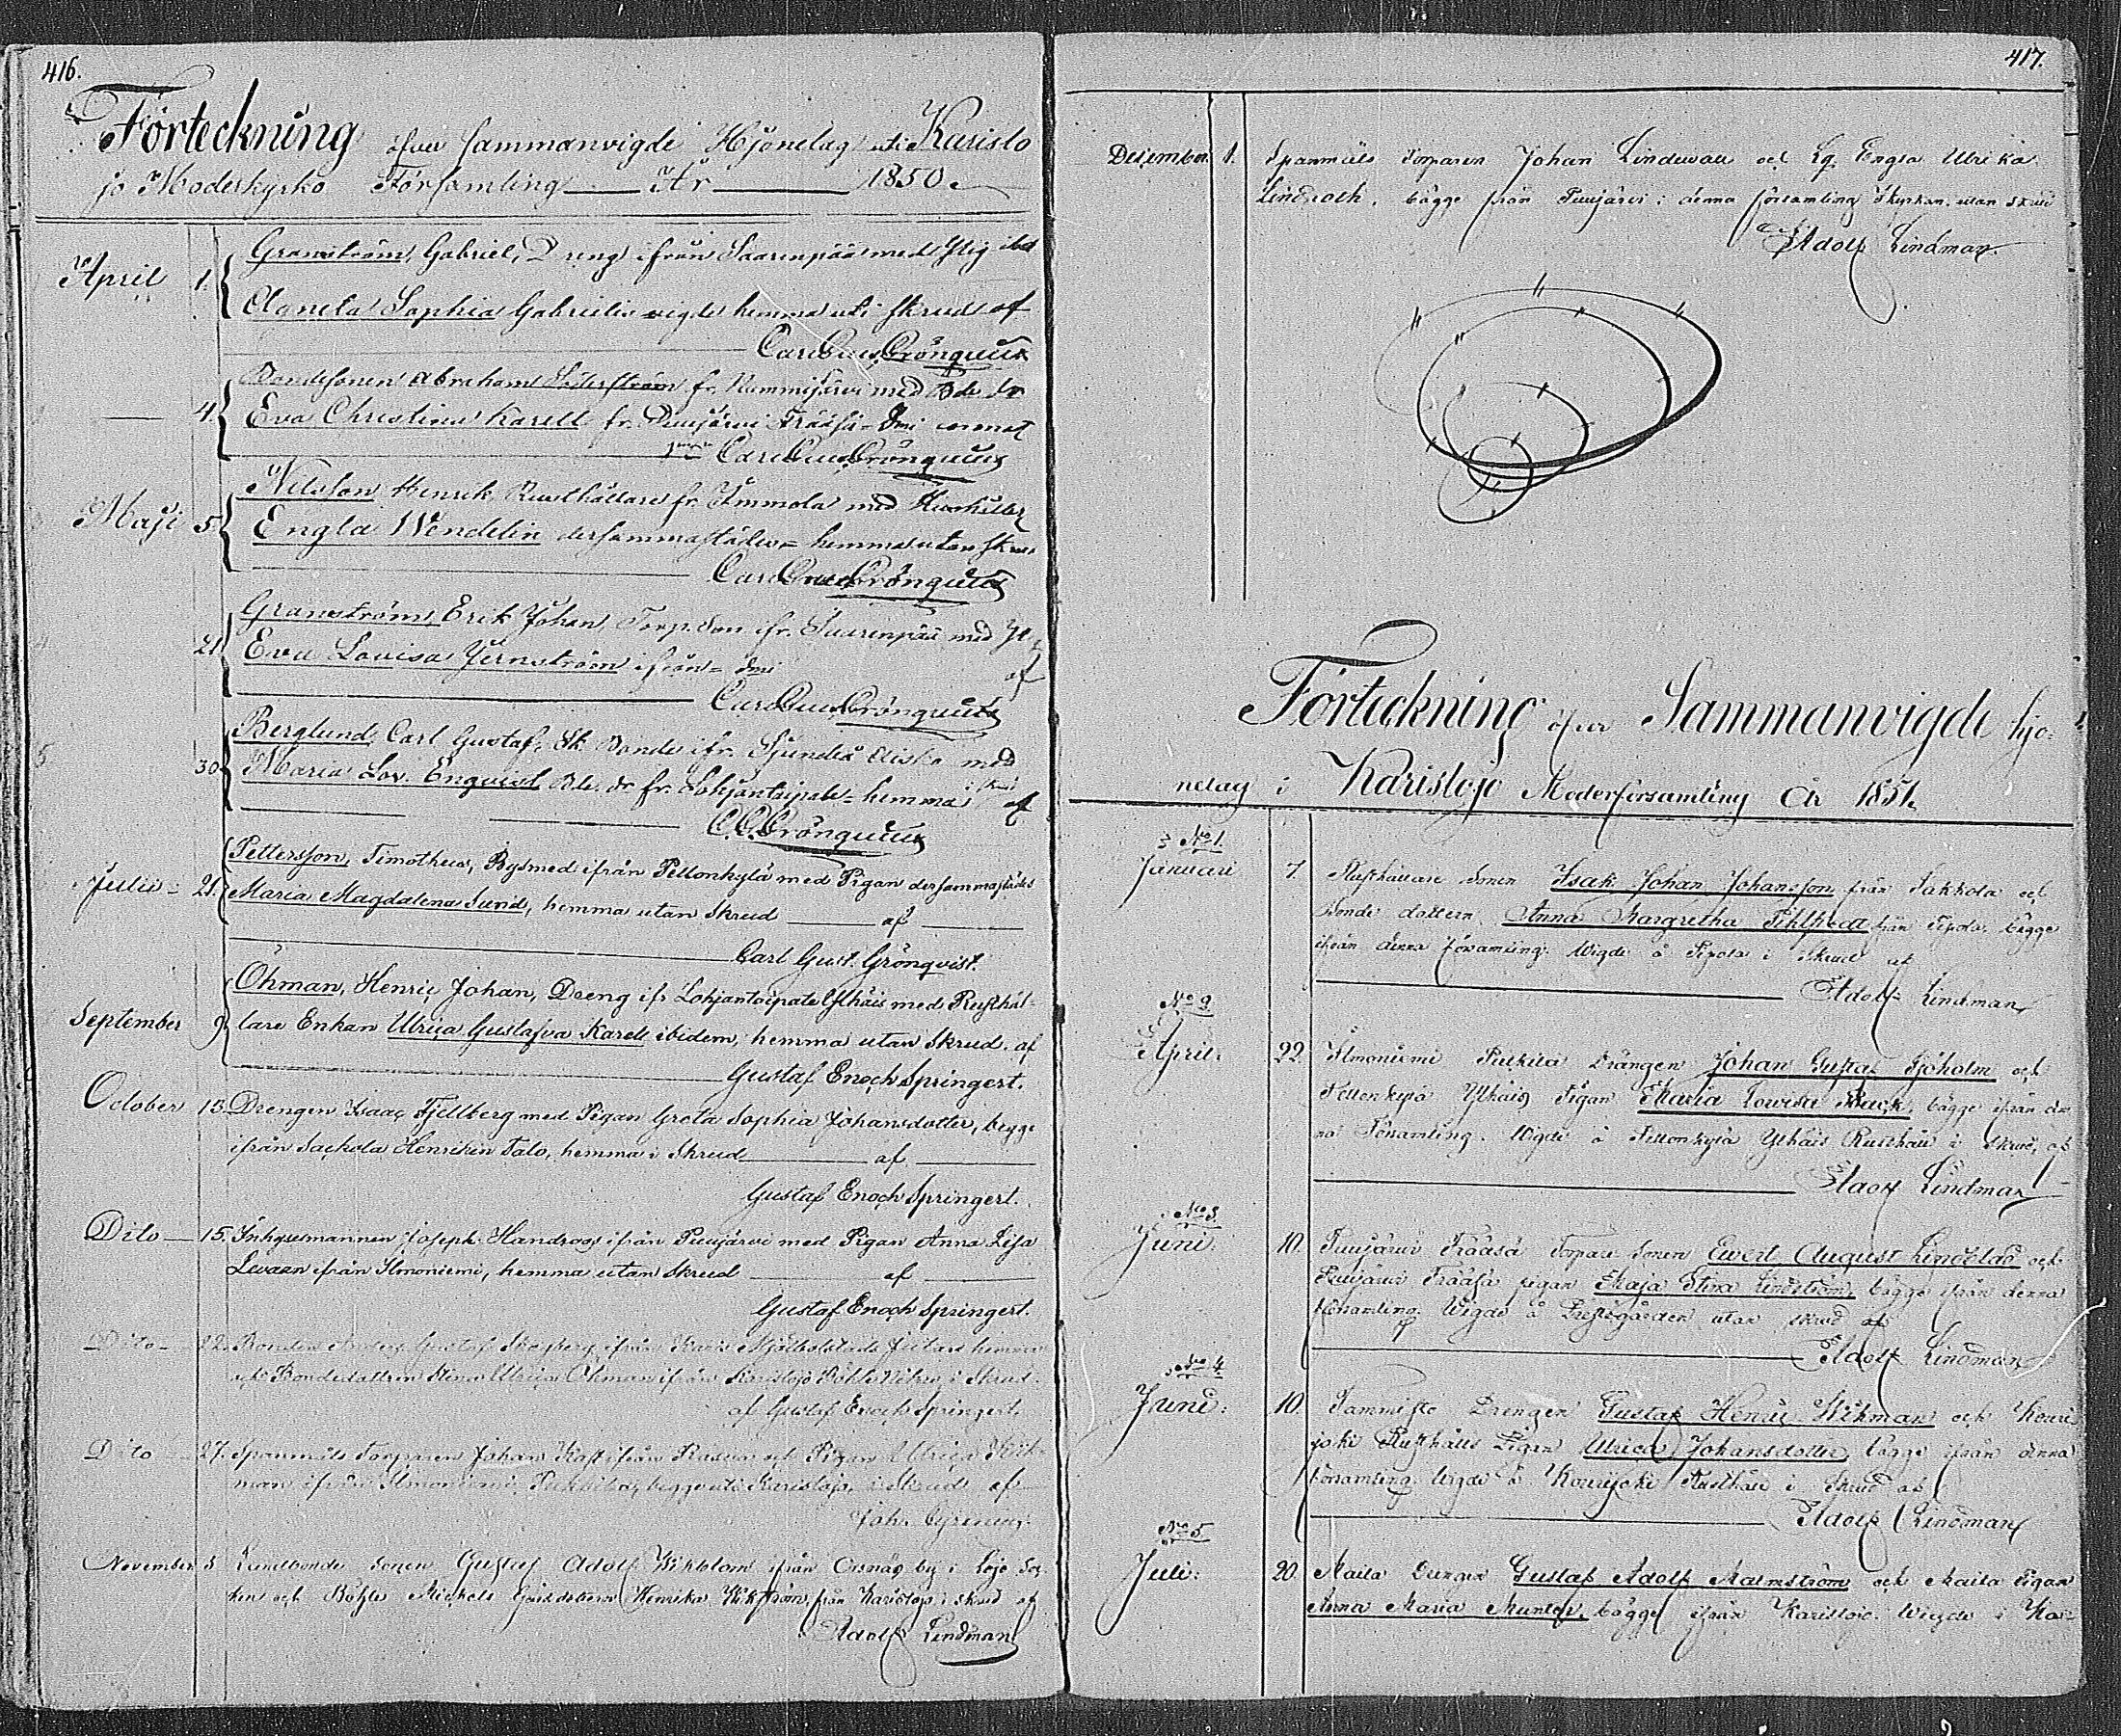 416.
Förteckning öfver Sammanvigde Hjonelag uti Karislo
jo Moderkyrko Församling År 1850.
April 1. Granström, Gabriel, Dreng ifrån Saarenpää med
Agneta Sophia Gabrielin vigde hemma uti skrud af
Carl Gust. Grönquist
4. Bondesonen Abraham Söderström fr. Nummijärvi med Bde dr
Eva Christina Karell fr. Puujärvi Träåsi
Carl Gust. Grönquist
Maji 5. Nilsson Henrik Rusthållare fr. Ammola med
Engla Wendelin dersammastädes = hemma utan skrud
Carl Gust. Grönquist
21 Granström, Erik Johan, Torp. Son ifr. Saarenpää med
Eva Lovisa Jernström ifrån = af
Carl Gust. Grönquist
30 Berglund, Carl Gustaf, Bonde ifr. Sjundeå med
Maria Lov. Enqvist Bde. dr fr. Lohjantaipale = hemma i skrud af
C. G. Grönquist
Julii = 21. Pettersson, Timotheus, Bysmed ifrån Pellonkylä med Pigan dersammastädes
Maria Magdalena Sund, hemma utan skrud af
Carl Gust. Grönqvist.
September 9. Öhman, Henric Johan, Dreng ifr Lohjantaipale Ylhäis med Rusthål-
lare Enkan Ulrica Gustafva Karell ibidem, hemma utan skrud. af
Gustaf Enoch Springert.
October 13. Drengen Isaac Fjellberg med Pigan Greta Sophia Johansdotter, begge
ifrån Sackola Henrikin Talo, hemma i skrud af
Gustaf Enoch Springert.
Dito 15. Inhysesmannen Joseph Handroos ifrån Puujärvi med Pigan Anna Lisa
Levaan ifrån Ilmoniemi, hemma utan skrud af
Gustaf Enoch Springert.
Dito 22. Bonden Anders Gustaf Skogberg ifrån Karis hemma
och Bondedottren Stina Ulrica Öhman ifrån Karislojo i skrud
af Gustaf Enoch Springert.
Dito 27. Spannmåls Torparen Johan ifrån och Pigan Ulrica Wik-
man ifrån Ilmoniemi, Puckila, begge uti Karislojo, i skrud af
Joh.
November 3 Landbonde Sonen Gustaf Adolf Wikholm ifrån Orsnäs by i Lojo Soc-
ken och Böhle Mickels Gårds dottern Henrika Wikström från Karislojo i skrud af
Adolf Lindman
417.
December 1. Spannmåls Torparen Johan Lindewall och Pig. Engla Ulrika
Lindroth, bägge från Puujärvi i denna församling i kyrkan utan skrud
af Adolf Lindman.
Förteckning öfver Sammanvigde Hjo-
nelag i Karislojo Moderförsamling År 1851.
No 1.
Januari 7. Rusthållare Sonen Isak Johan Johansson från Sakkola och
Bonde dottern Anna Margretha Pihlstedt från Pipola, bägge
ifrån denna församling. Wigde å Pipola i skrud af
Adolf Lindman
No 2.
April: 22. Ilmoniemi Puckila Drängen Johan Gustaf Sjöholm och
Pellonkylä Ylhäis Pigan Maria Lowisa Back, bägge ifrån den-
na Församling. Wigde å Pellonkylä Ylhäis Rusthåll i skrud, af
Adolf Lindman
No 3.
Juni: 10. Puujärvi Trääsä Torpare Sonen Evert August Lindblad och
Puujärvi Trääsä pigan Maja Stina Lindström, bägge ifrån denna
församling. Wigde å Prestgården utan skrud af
Adolf Lindman
No 4
Juni: 10. Tammisto Drengen Gustaf Henric Wikman och Kouri
joki Rusthålls Pigan Ulrica Johansdotter, bägge ifrån denna
församling. Wigde å Kourijoki Rusthåll i skrud af
Adolf Lindman
No 5.
Juli: 20. Maila Drengen Gustaf Adolf Malmström och Maila Pigan
Anna Maria Munter, bägge ifrån Karislojo. Wigde i Ka-